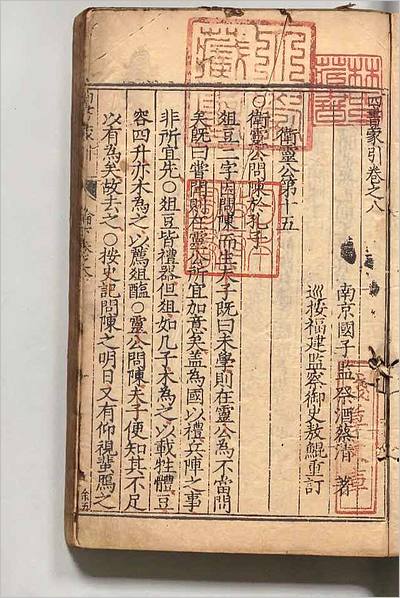 四書蒙引卷之八
南京國子監祭酒蔡清 著
巡按福建監察御史敖鯤重訂
衛靈公第十五
○衛靈公問陳於孔子
俎豆二字因問陳而生夫子既曰未學則在靈公為不當問
矣既曰嘗聞則在靈公所宜加意矣蓋為國以禮兵陣之事
非所宜先○俎豆皆禮器但俎如几子木為之以載牲體豆
容四升亦木為之以薦菹醢○靈公問陳夫子便知其不足
以有為矣故去之○按史記問陳之明日又有仰視蜚鴈之